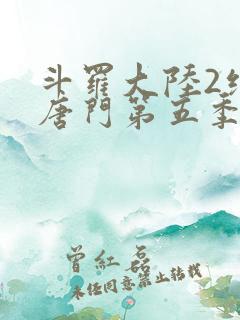 斗羅大陸2
唐門第五季
曾紅磊
未經同意禁止轉載